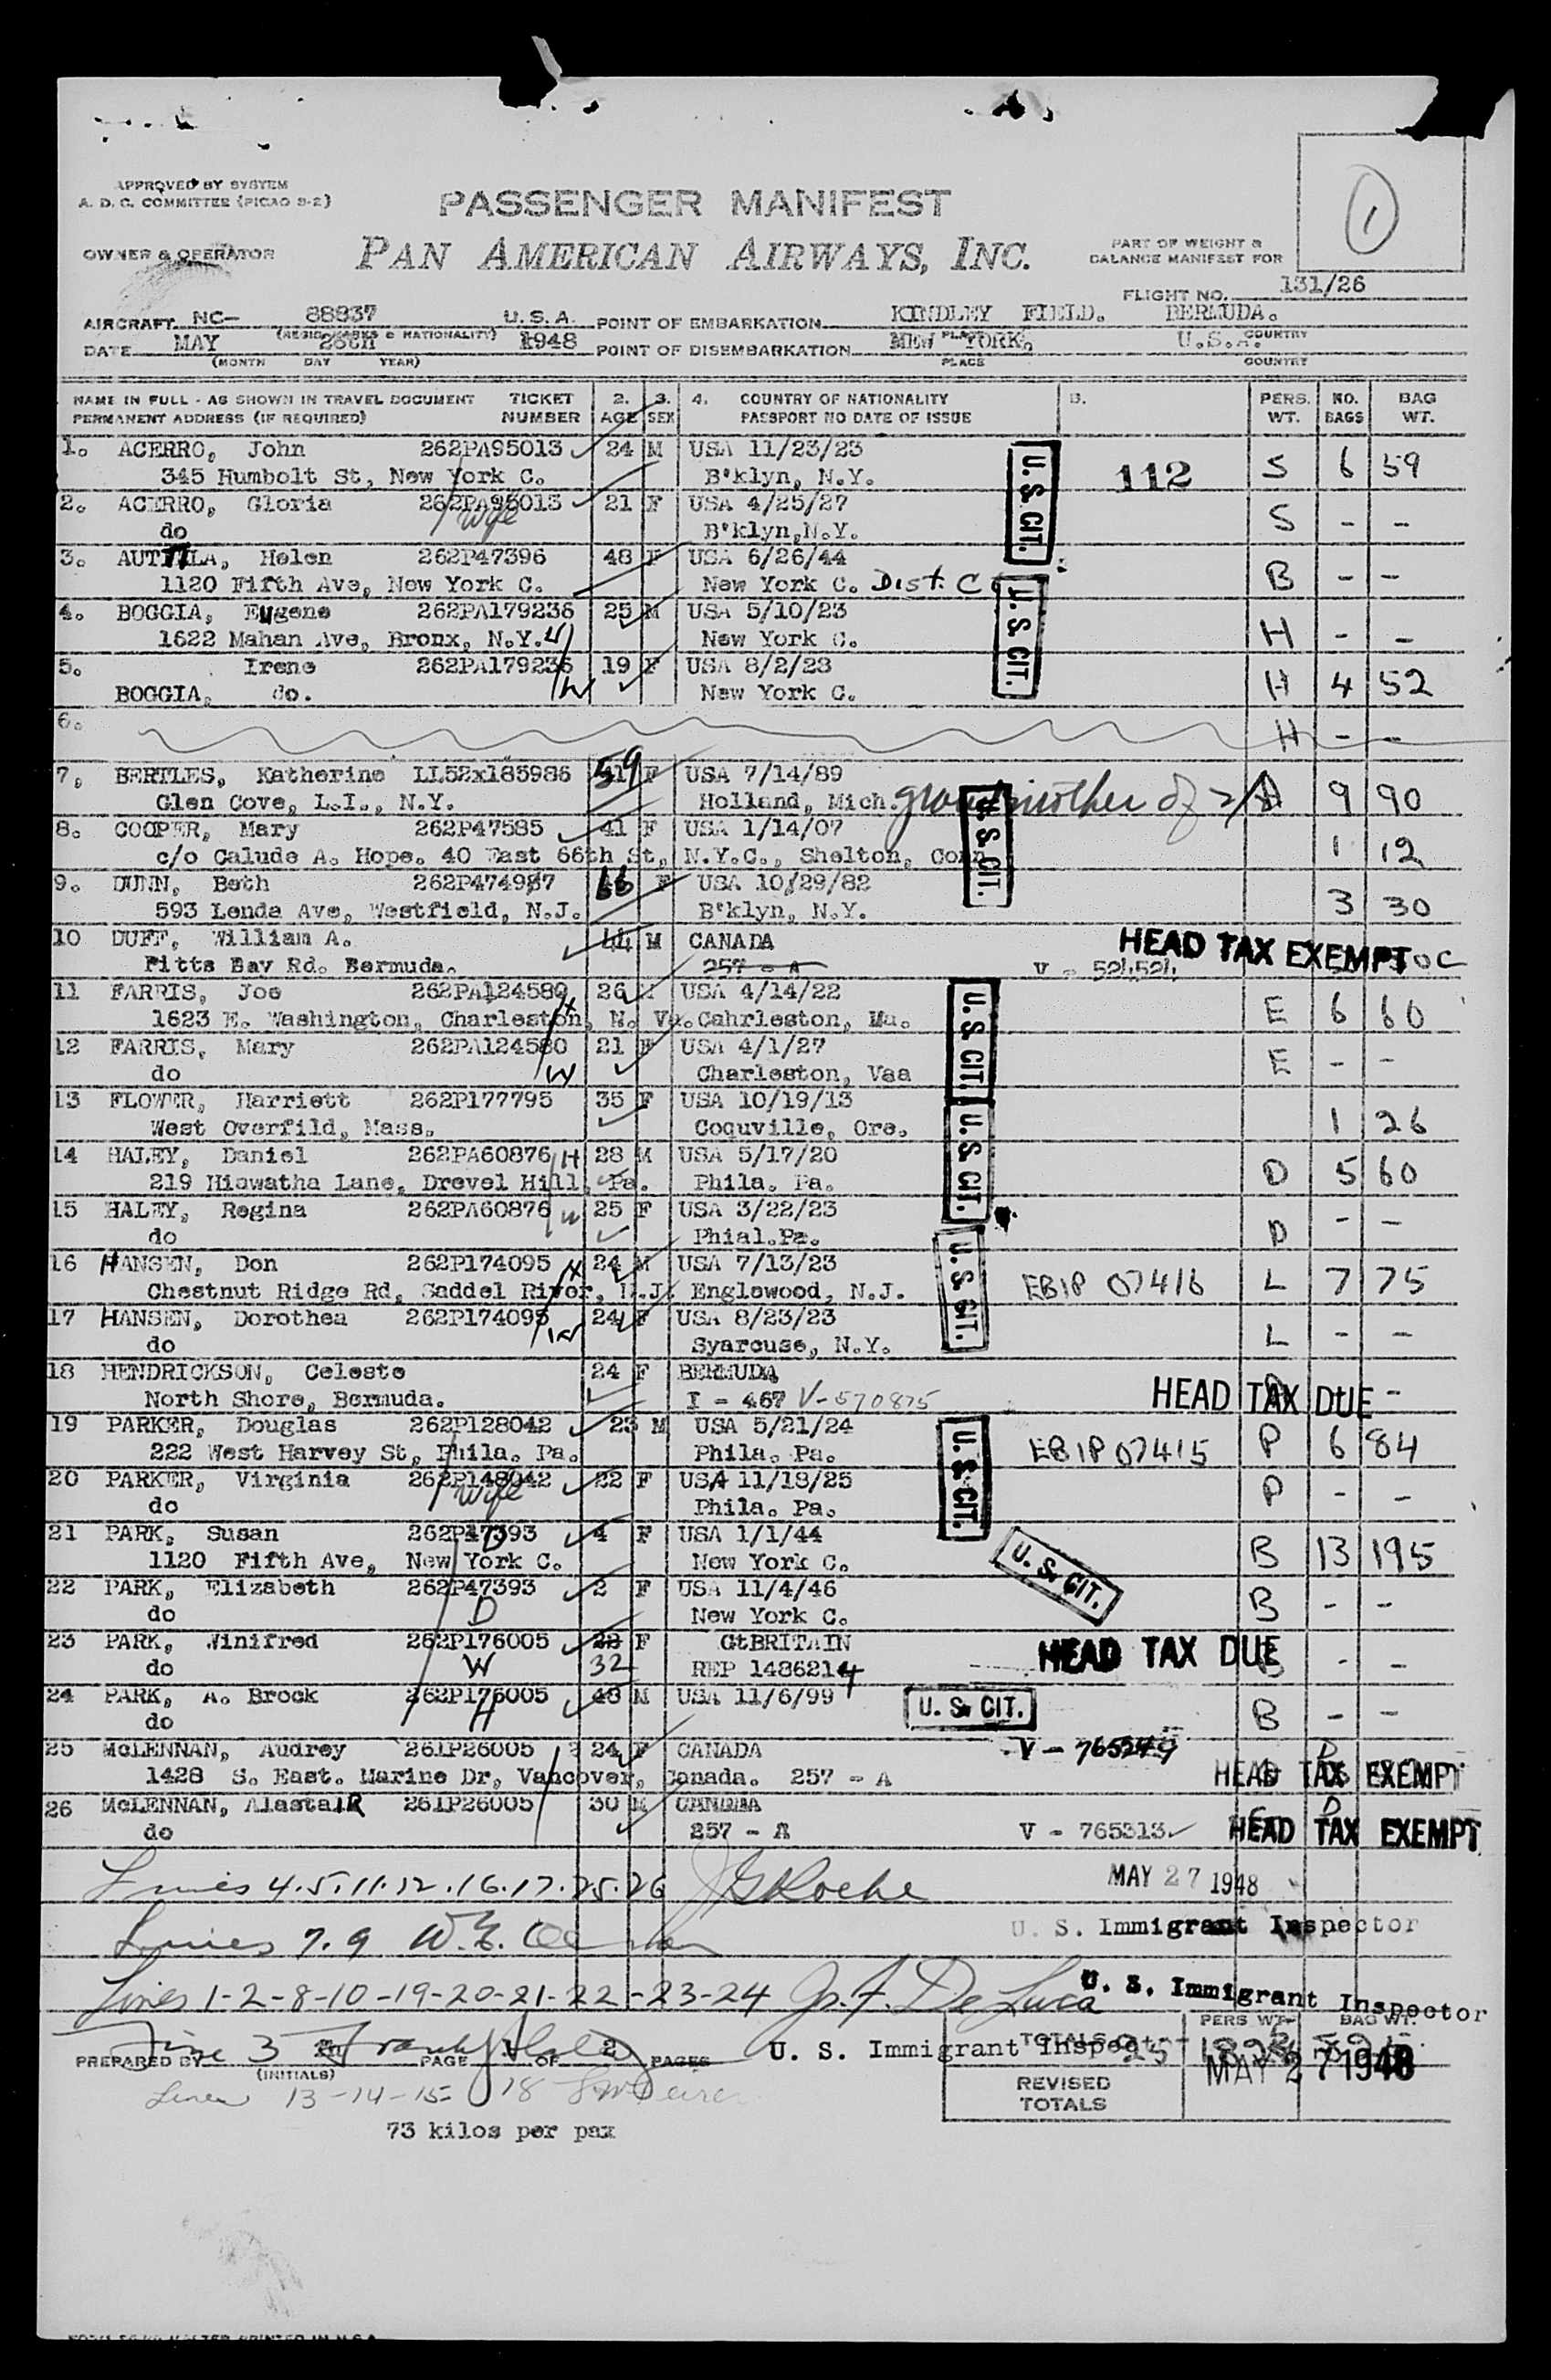 APPROVED BY SYSTEM
A. D. C. COMMITTEE (PICAO S-2)
PASSENGER MANIFEST
1
OWNER & OPERATOR
PAN AMERICAN AIRWAYS, INC.
PART OF WEIGHT &
BALANCE MANIFEST FOR
FLIGHT NO. 131/26
AIRCRAFT NC- 88837 U.S.A. POINT OF EMBARKATION KINDLEY FIELD. BERMUDA.
(REGIS. MARKS & NATIONALITY) PLACE COUNTRY
DATE MAY 26th 1948 POINT OF DISEMBARKATION NEW YORK. U.S.A.
(MONTH DAY YEAR) PLACE COUNTRY
NAME IN FULL - AS SHOWN IN TRAVEL DOCUMENT TICKET 2. 3. 4. COUNTRY OF NATIONALITY 5. PERS. NO. BAG
PERMANENT ADDRESS (IF REQUIRED) NUMBER AGE SEX PASSPORT NO DATE OF ISSUE WT. BAGS WT.
1. ACERRO, John 262PA95013 24 M USA 11/23/23 U.S. CIT. 112 S 6 59
345 Humbolt St, New York C. B'klyn, N.Y.
2. ACERRO, Gloria 262PA95013 wife 21 F USA 4/25/27 S - -
do B'klyn,N.Y.
3. AUTTILA, Helen 262P47396 48 F USA 6/26/44 B - -
1120 Fifth Ave, New York C. New York C. Dist. C
4. BOGGIA, Eugene 262PA179236 25 M USA 5/10/23 U.S. CIT. H - -
1622 Mahan Ave, Bronx, N.Y. H New York C.
5. Irene 262PA179236 19 F USA 8/2/28 H 4 52
BOGGIA, do. W New York C.
6. H - -
7, BERTLES, Katherine LL52x185986 59 F USA 7/14/89 A 9 90
Glen Cove, L.I., N.Y. Holland, Mich. grandmother of 2/
8. COOPER, Mary 262P47585 41 F USA 1/14/07 U.S. CIT. 1 12
c/o Calude A. Hope. 40 East 66th St, N.Y.C., Shelton, Conn
9. DUNN, Beth 262P474987 66 F USA 10/29/82 3 30
593 Lenda Ave, Westfield, N.J. B'klyn, N.Y.
10 DUFF, William A. 44 M CANADA HEAD TAX EXEMPT
Pitts Bay Rd. Bermuda. 257 - A V - 524524
11 FARRIS, Joe 262PA124580 H 26 M USA 4/14/22 U.S. CIT. E 6 60
1623 E. Washington, Charleston, N. Va. Cahrleston, Wa.
12 FARRIS, Mary 262PA124580 21 F USA 4/1/27 E - -
do W Charleston, Vaa
13 FLOWER, Harriett 262P177795 35 F USA 10/19/13 U.S. CIT. 1 26
West Overfild, Mass. Coquville, Ore.
14 HALEY, Daniel 262PA60876 H 28 M USA 5/17/20 D 5 60
219 Hiawatha Lane, Drevel Hill, Pa. Phila. Pa.
15 HALEY, Regina 262PA60876 W 25 F USA 3/22/23 D - -
do Phial.Pa.
16 HANSEN, Don 262P174095 H 24 M USA 7/13/23 U.S. CIT. EBIP 07416 L 7 75
Chestnut Ridge Rd, Saddel River, N.J. Englewood, N.J.
17 HANSEN, Dorothea 262P174095 W 24 F USA 8/23/23 L - -
do Syarcuse, N.Y.
18 HENDRICKSON, Celeste 24 F BERMUDA HEAD TAX DUE -
North Shore, Bermuda. I - 467 V-570875
19 PARKER, Douglas 262P128042 23 M USA 5/21/24 U.S. CIT. EBIP 07415 P 6 84
222 West Harvey St, Phila. Pa. Phila. Pa.
20 PARKER, Virginia 262P148042 wife 22 F USA 11/18/25 P - -
do Phila. Pa.
21 PARK, Susan 262P47393 D 4 F USA 1/1/44 U.S. CIT. B 13 195
1120 Fifth Ave, New York C. New York C.
22 PARK, Elizabeth 262P47393 2 F USA 11/4/46 B - -
do D New York C.
23 PARK, Winifred 262P176005 F GtBRITAIN HEAD TAX DUE - -
do W 32 REP 1486214
24 PARK, A. Brock 262P176005 48 M USA 11/6/99 U.S. CIT. B - -
do H
25 McLENNAN, Audrey 261P26005 24 F CANADA V - 765249 HEAD TAX EXEMPT
1428 S. East. Marine Dr, Vancover, Canada. 257 - A
26 McLENNAN, AlastaIR 261P26005 30 M CANADA HEAD TAX EXEMPT
do 257 - A V - 765313
Lines 4.5.11.12.16.17.25.26 JG Roche MAY 27 1948
U. S. Immigrant Inspector
Lines 7.9 W.
Lines 1-2-8-10-19-20-21-22-23-24 Jr. F. De Luca U. S. Immigrant Inspector
Line 3 Frank U. S. Immigrant Inspect
PREPARED BY PAGE 1 OF 2 PAGES
(INITIALS)
TOTALS PERS WT. BAG WT.
MAY 27 1948
REVISED
TOTALS
Lines 13-14-15 18
73 kilos per pax